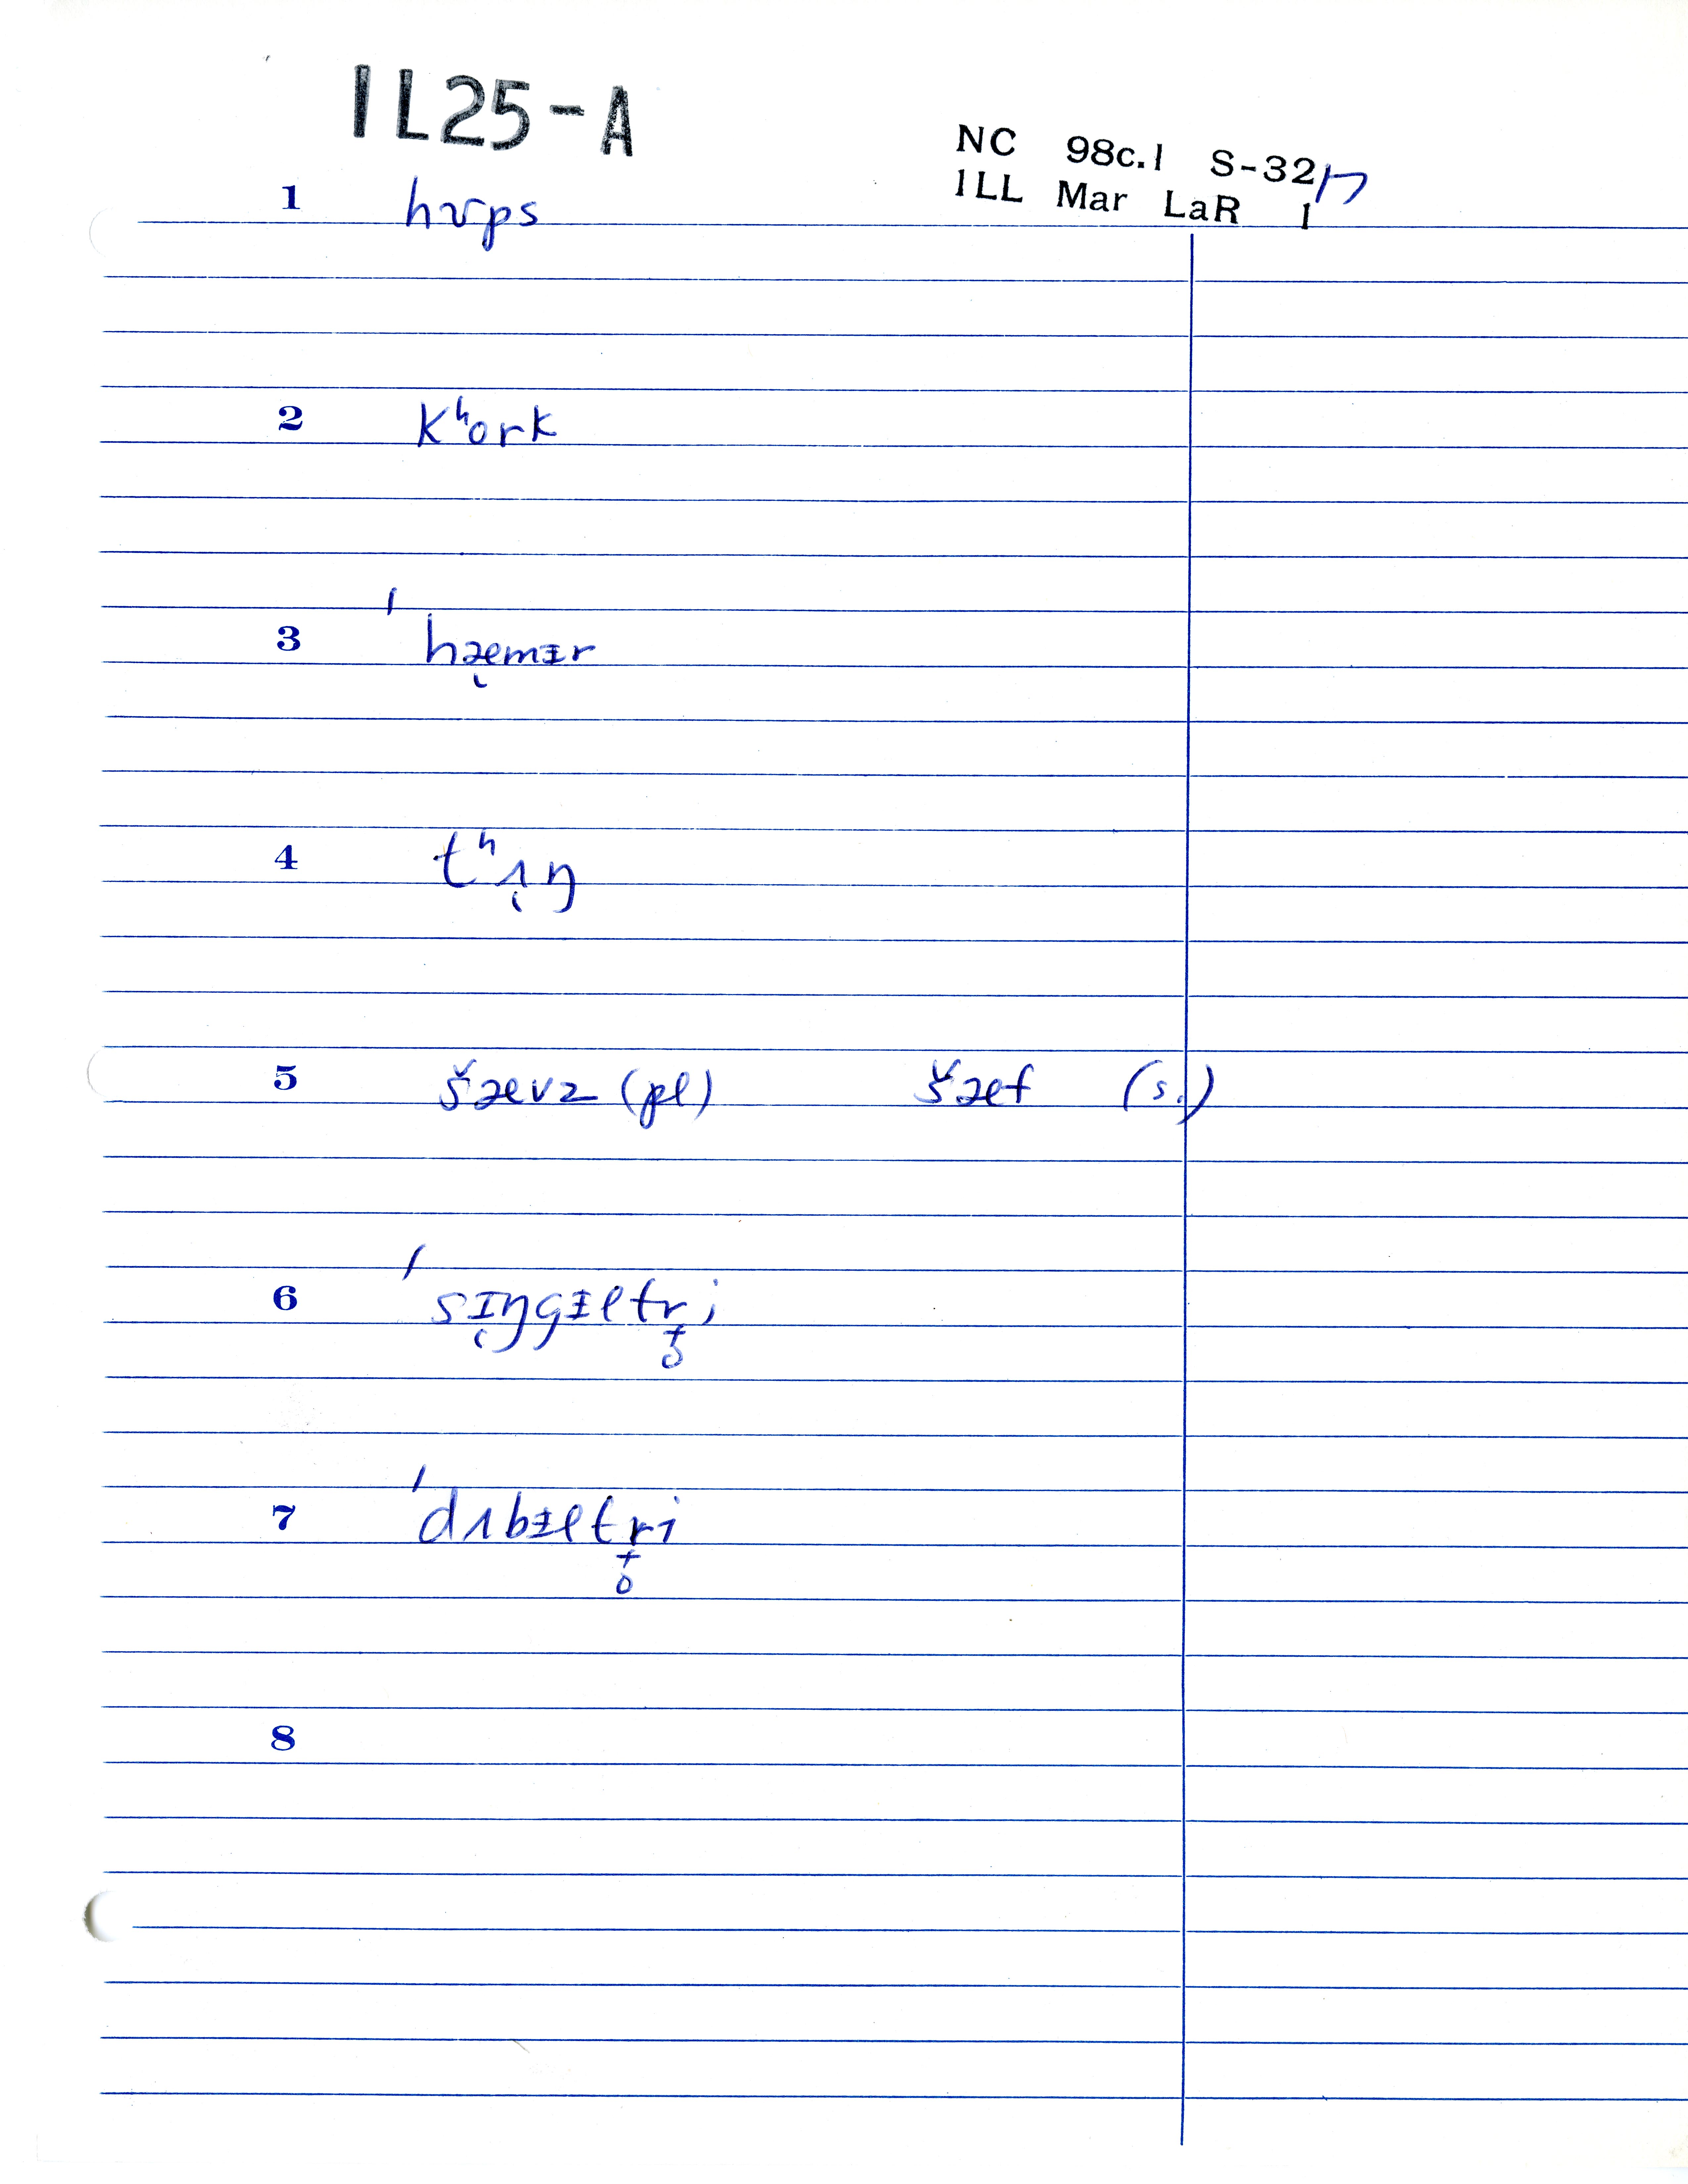 1L25-A
NC 98c.1 S-32
ILL Mar LaR 1
1 hʊps
2 kʰork
3 ˈhæ̨mᵻr
4 tʰʌ̨ŋ
5 šævz (pl) šæf (s.)
6 ˈsɪ̨ŋgᵻltr̟̥i
7 ˈdʌbᵻltr̟̥i
8